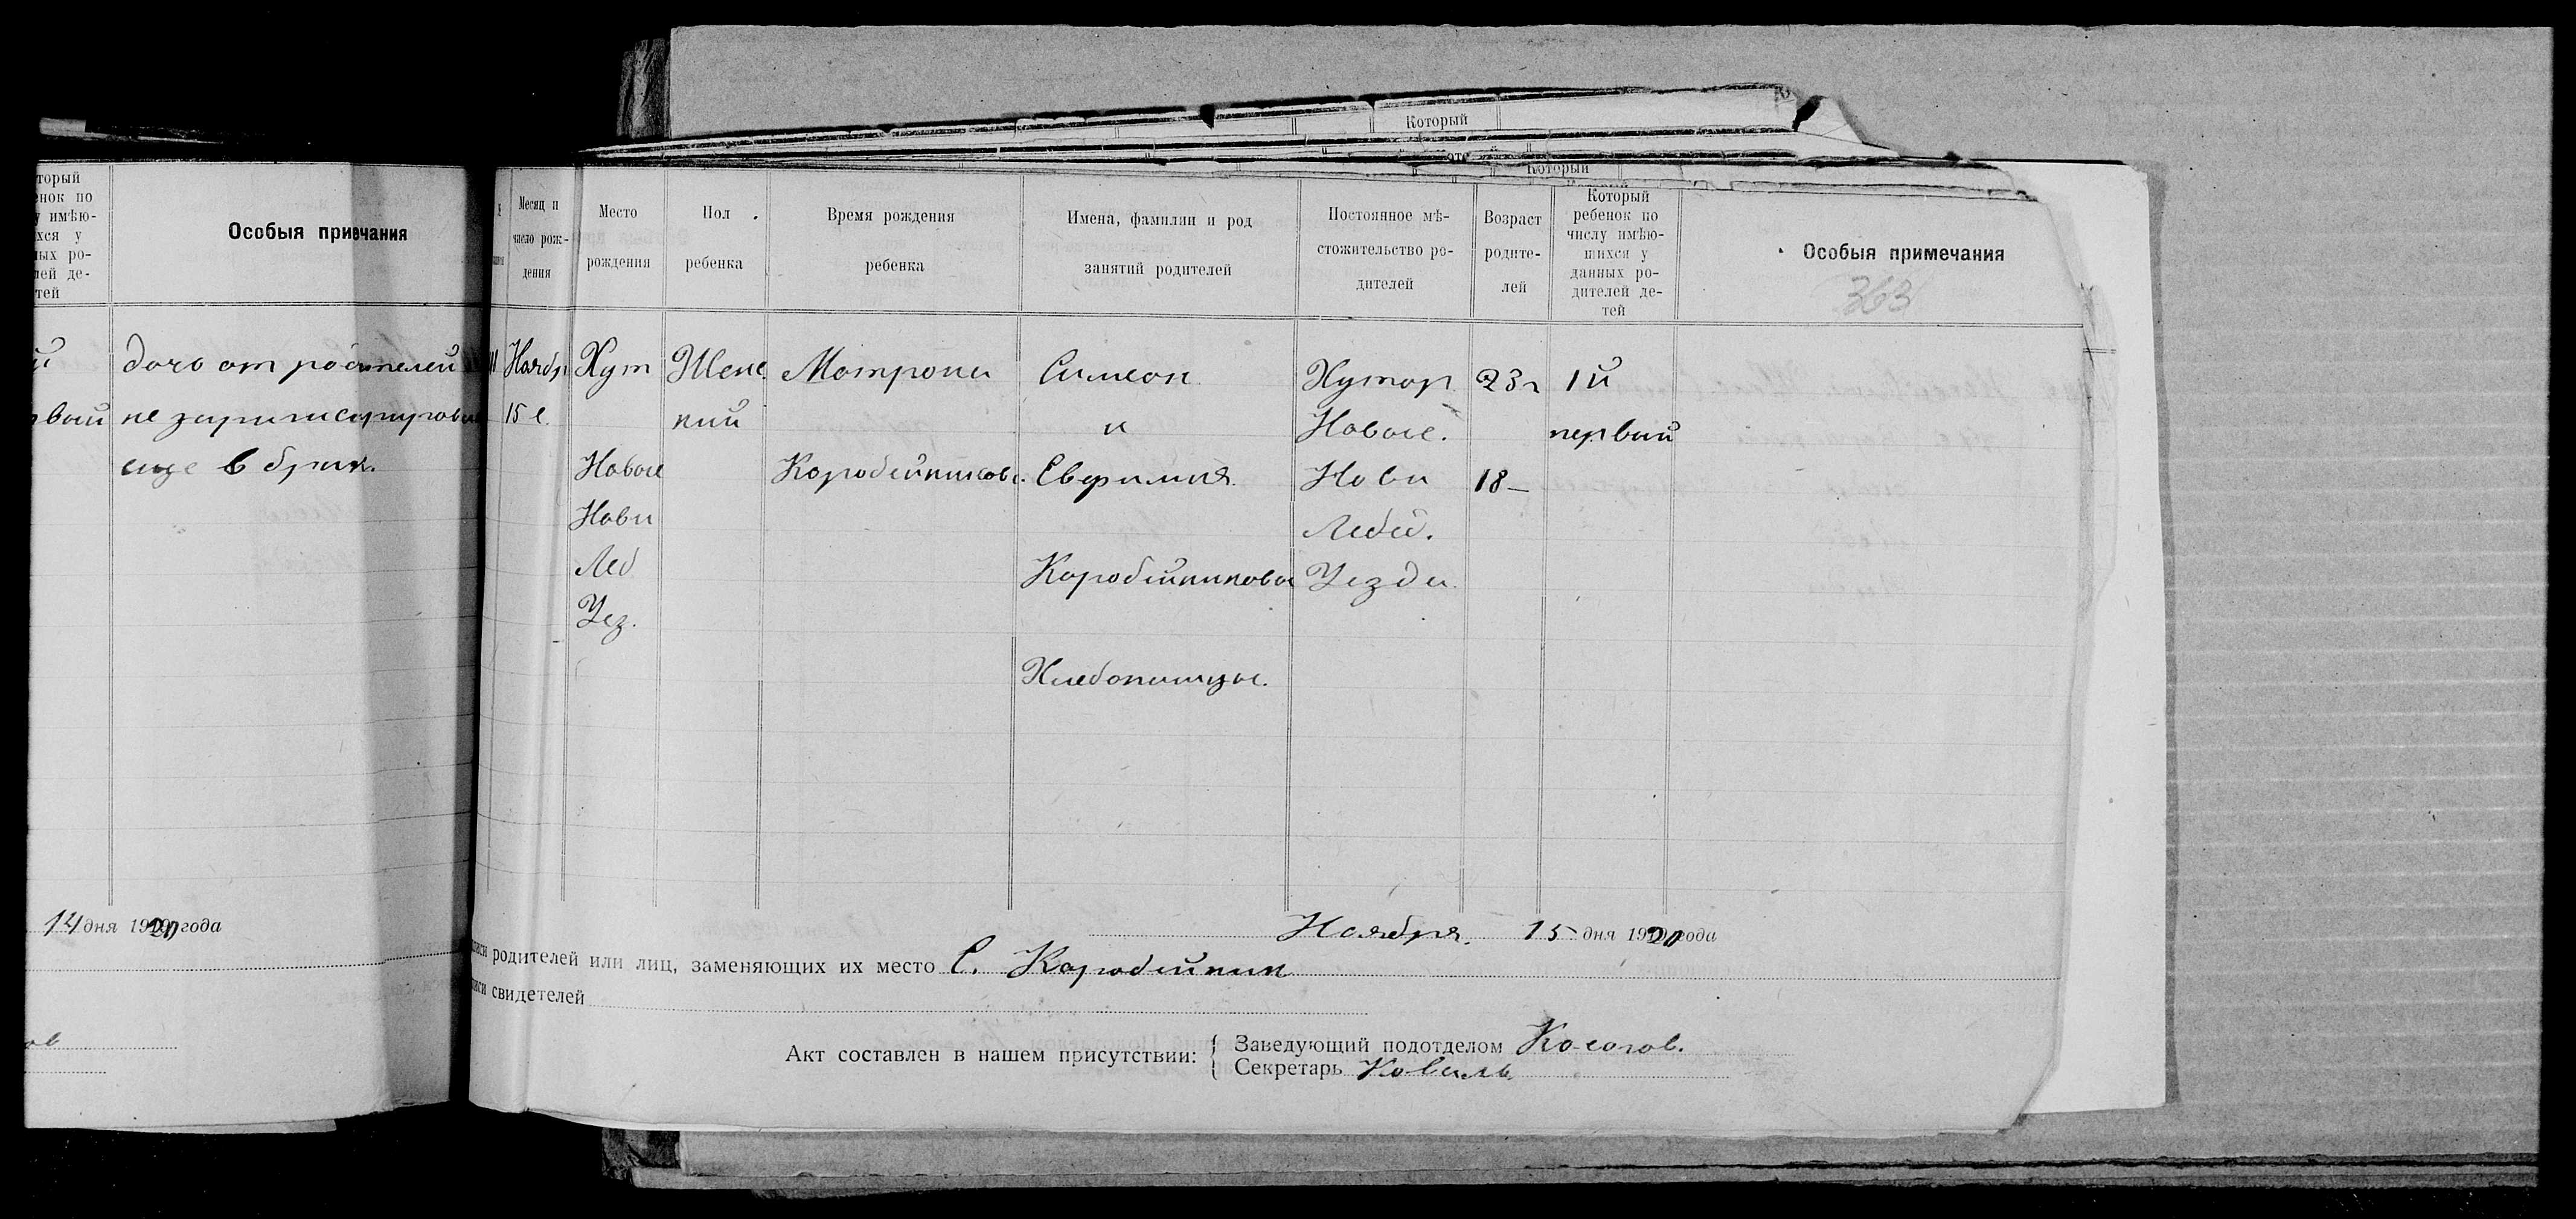 Который
Который
торый
енок по
у имѣю-
хся у
ных ро-
лей де-
тей
Особыя привчания
й
рвый
дочь от родителей
не зарегистрирова
еще в брак.
14 дня 1920 года
ов
Месяц и
число рож-
дения
Место
рождения
Пол
ребенка
Время рождения
ребенка
Имена, фамилии и род
занятий родителей
Постоянное мѣ-
стожительство ро-
дителей
Возраст
родите-
лей
Который
ребенок по
числу имѣю-
шихся у
данных ро-
дителей де-
тей
Особыя примечания
363
11
Ноябр
15 е.
Хут
Новое
Нови
Леб
Уез.
Женс
кий
Матрона
Коробейникова.
Симеон
и
Евфимия
Коробейниковы
Хлебопашцы.
Хутор
Новое.
Нови
Лебед.
Уезда
23 г
18 —
1 й
первый
Ноября. 15 дня 1920 года
писи родителей или лиц, заменяющих их место С. Коробейник
писи свидетелей
Акт составлен в нашем присутствии:
Заведующий подотделом Косогов.
Секретарь Коваль